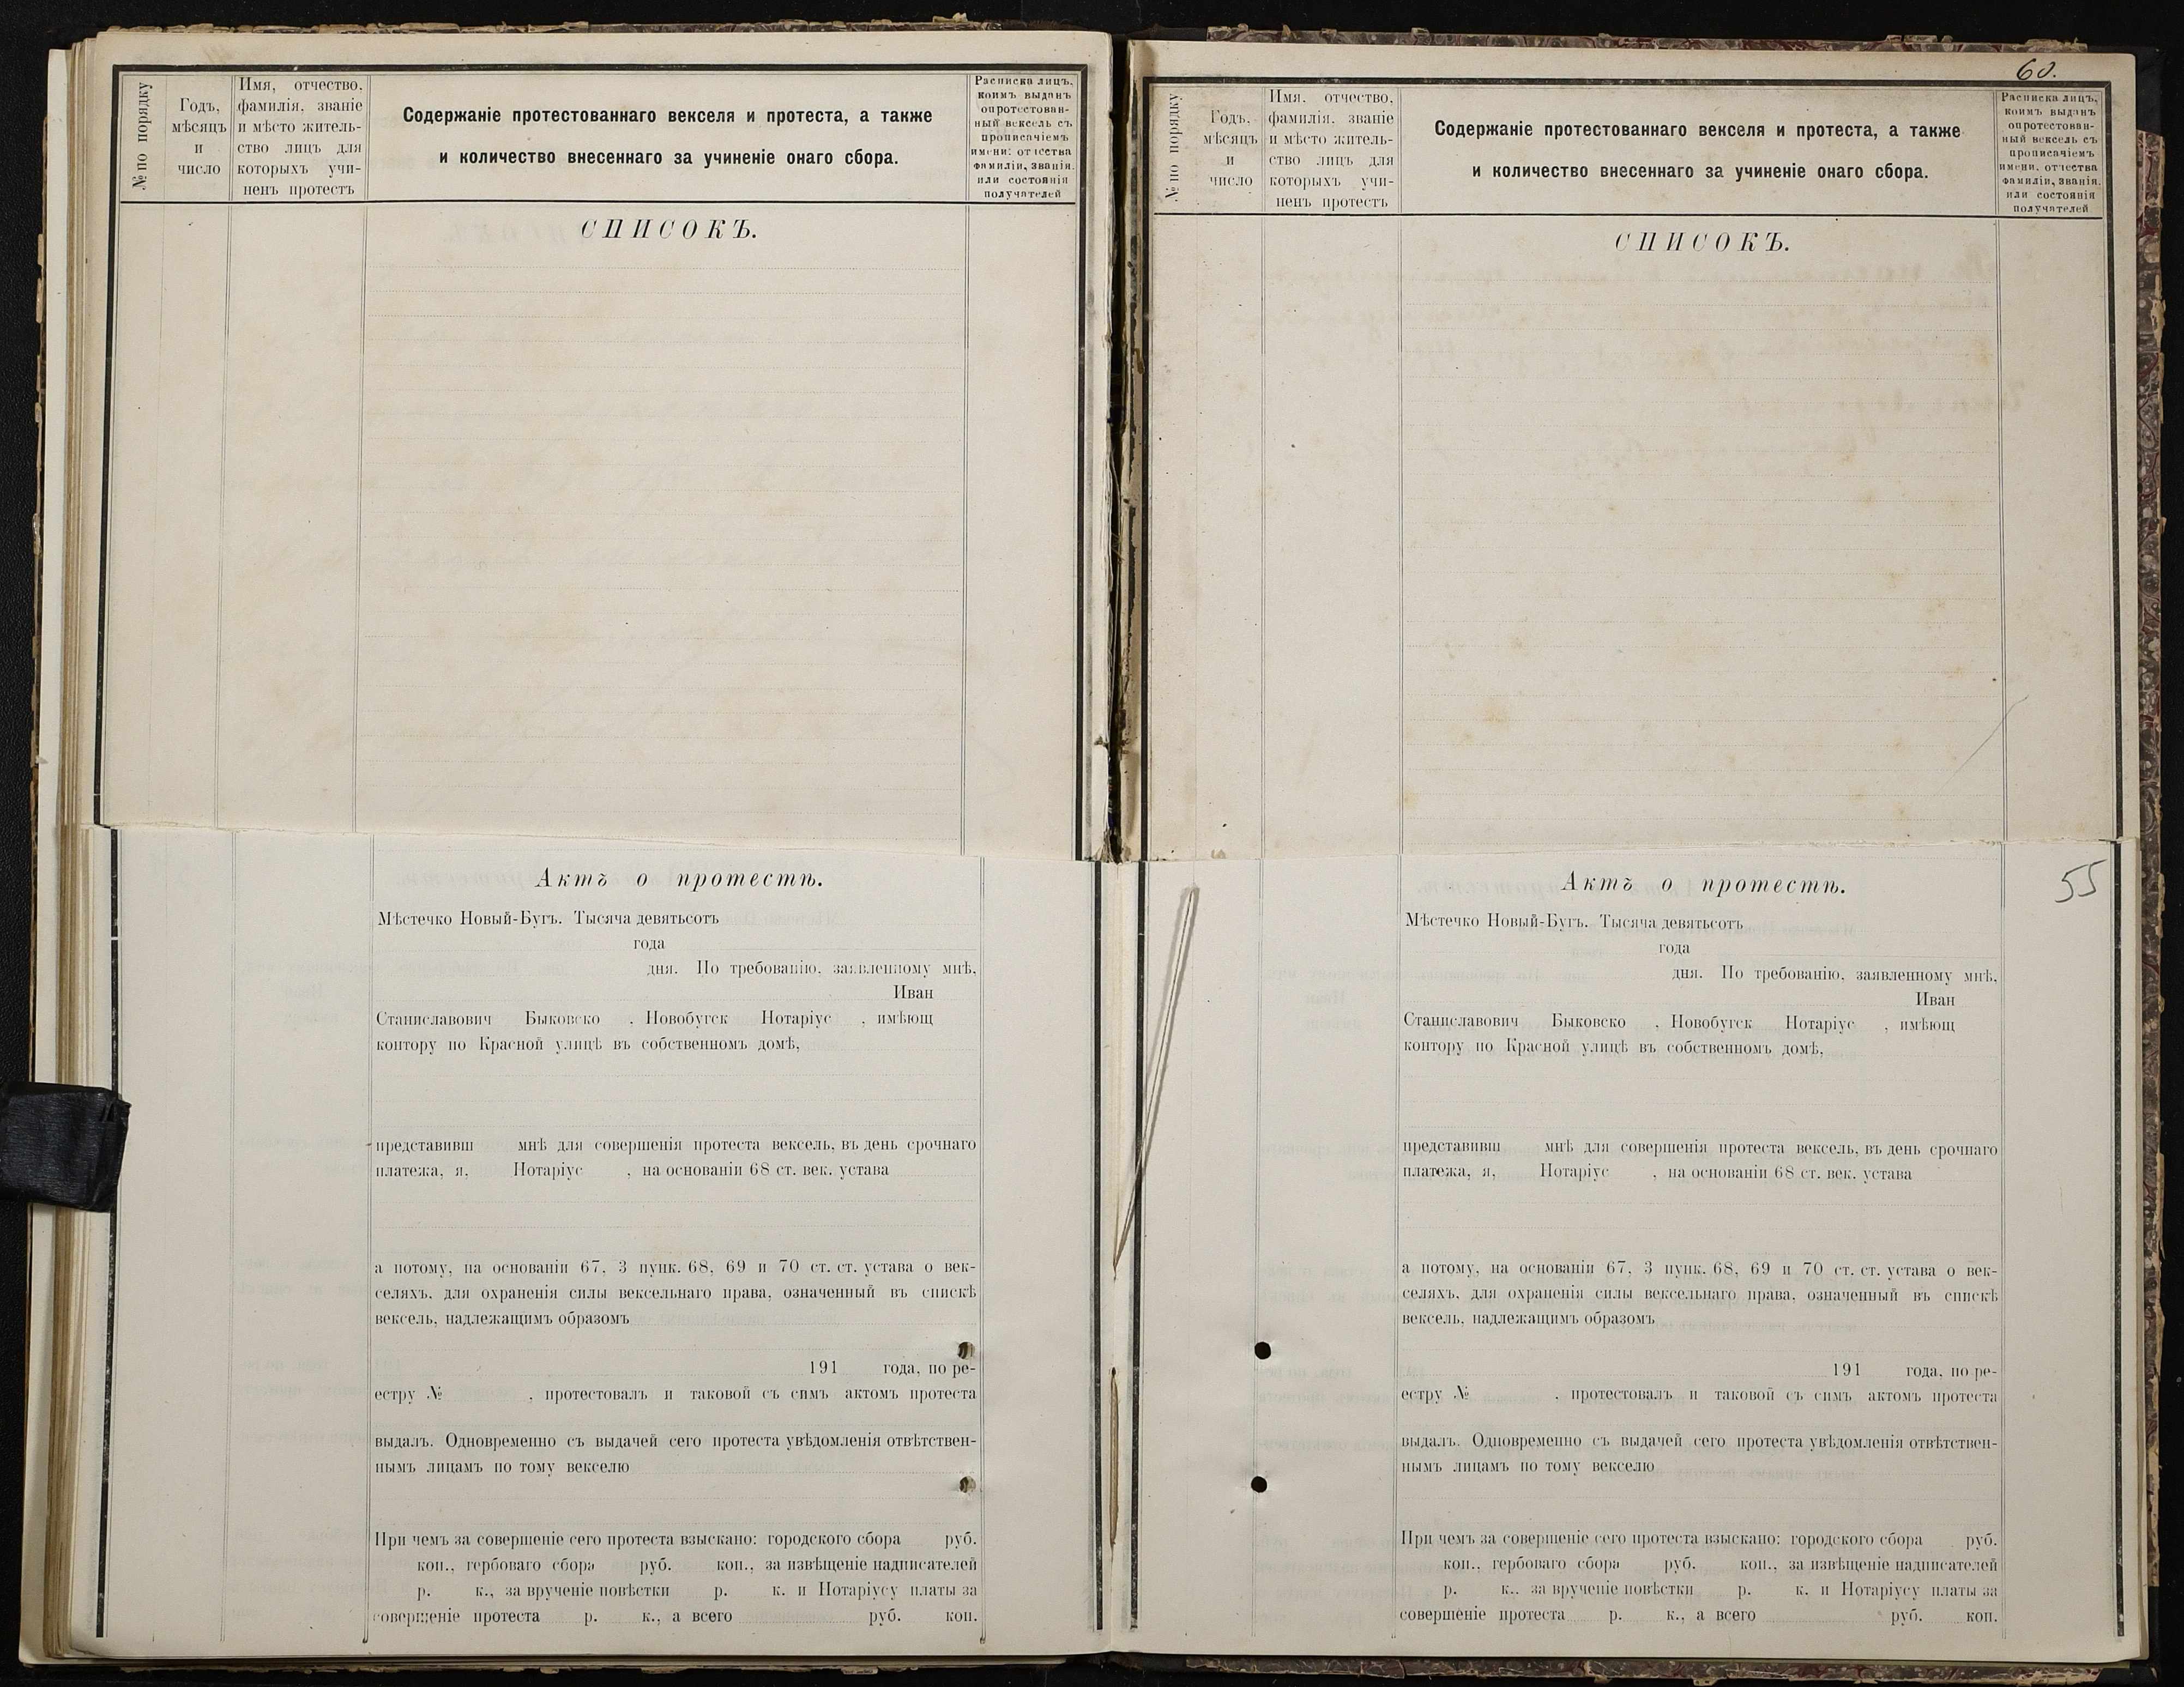 № по порядку
Годъ,
мѣсяцъ
и
число
Имя, отчество,
фамилія, званіе
и мѣсто житель-
ство лицъ для
которыхъ учи-
ненъ протестъ
Содержаніе протестованнаго векселя и протеста, а также
и количество внесеннаго за учиненіе онаго сбора.
Расписка лицъ,
коимъ выданъ
опротестован-
ный вексель съ
прописаніемъ
имени, отчества
фамиліи, званія,
или состоянія
получателей
СПИСОКЪ.
Актъ о протестѣ.
Мѣстечко Новый-Бугъ. Тысяча девятьсотъ
года
дня. По требованію, заявленному мнѣ,
Иван
Станиславович Быковско , Новобугск Нотаріус , имѣющ
контору по Красной улицѣ въ собственномъ домѣ,
представивш мнѣ для совершенія протеста вексель, въ день срочнаго
платежа, я, Нотаріус , на основаніи 68 ст. век. устава
а потому, на основаніи 67, 3 пунк. 68, 69 и 70 ст. ст. устава о век-
селяхъ, для охраненія силы вексельнаго права, означенный въ спискѣ
вексель, надлежащимъ образомъ
191 года, по ре-
естру № , протестовалъ и таковой съ симъ актомъ протеста
выдалъ. Одновременно съ выдачей сего протеста увѣдомленія отвѣтствен-
нымъ лицамъ по тому векселю
При чемъ за совершеніе сего протеста взыскано: городского сбора руб.
коп., гербоваго сбора руб. коп., за извѣщеніе надписателей
р. к., за врученіе повѣстки р. к. и Нотаріусу платы за
совершеніе протеста р. к., а всего руб. коп.
60.
№ по порядку
Годъ,
мѣсяцъ
и
число
Имя, отчество,
фамилія, званіе
и мѣсто житель-
ство лицъ для
которыхъ учи-
ненъ протестъ
Содержаніе протестованнаго векселя и протеста, а также
и количество внесеннаго за учиненіе онаго сбора.
Расписка лицъ,
коимъ выданъ
опротестован-
ный вексель съ
прописаніемъ
имени, отчества
фамиліи, званія,
или состоянія
получателей
СПИСОКЪ.
55
Актъ о протестѣ.
Мѣстечко Новый-Бугъ. Тысяча девятьсотъ
года
дня. По требованію, заявленному мнѣ,
Иван
Станиславович Быковско , Новобугск Нотаріус , имѣющ
контору по Красной улицѣ въ собственномъ домѣ,
представивш мнѣ для совершенія протеста вексель, въ день срочнаго
платежа, я, Нотаріус , на основаніи 68 ст. век. устава
а потому, на основаніи 67, 3 пунк. 68, 69 и 70 ст. ст. устава о век-
селяхъ, для охраненія силы вексельнаго права, означенный въ спискѣ
вексель, надлежащимъ образомъ
191 года, по ре-
естру № , протестовалъ и таковой съ симъ актомъ протеста
выдалъ. Одновременно съ выдачей сего протеста увѣдомленія отвѣтствен-
нымъ лицамъ по тому векселю
При чемъ за совершеніе сего протеста взыскано: городского сбора руб.
коп., гербоваго сбора руб. коп., за извѣщеніе надписателей
р. к., за врученіе повѣстки р. к. и Нотаріусу платы за
совершеніе протеста р. к., а всего руб. коп.